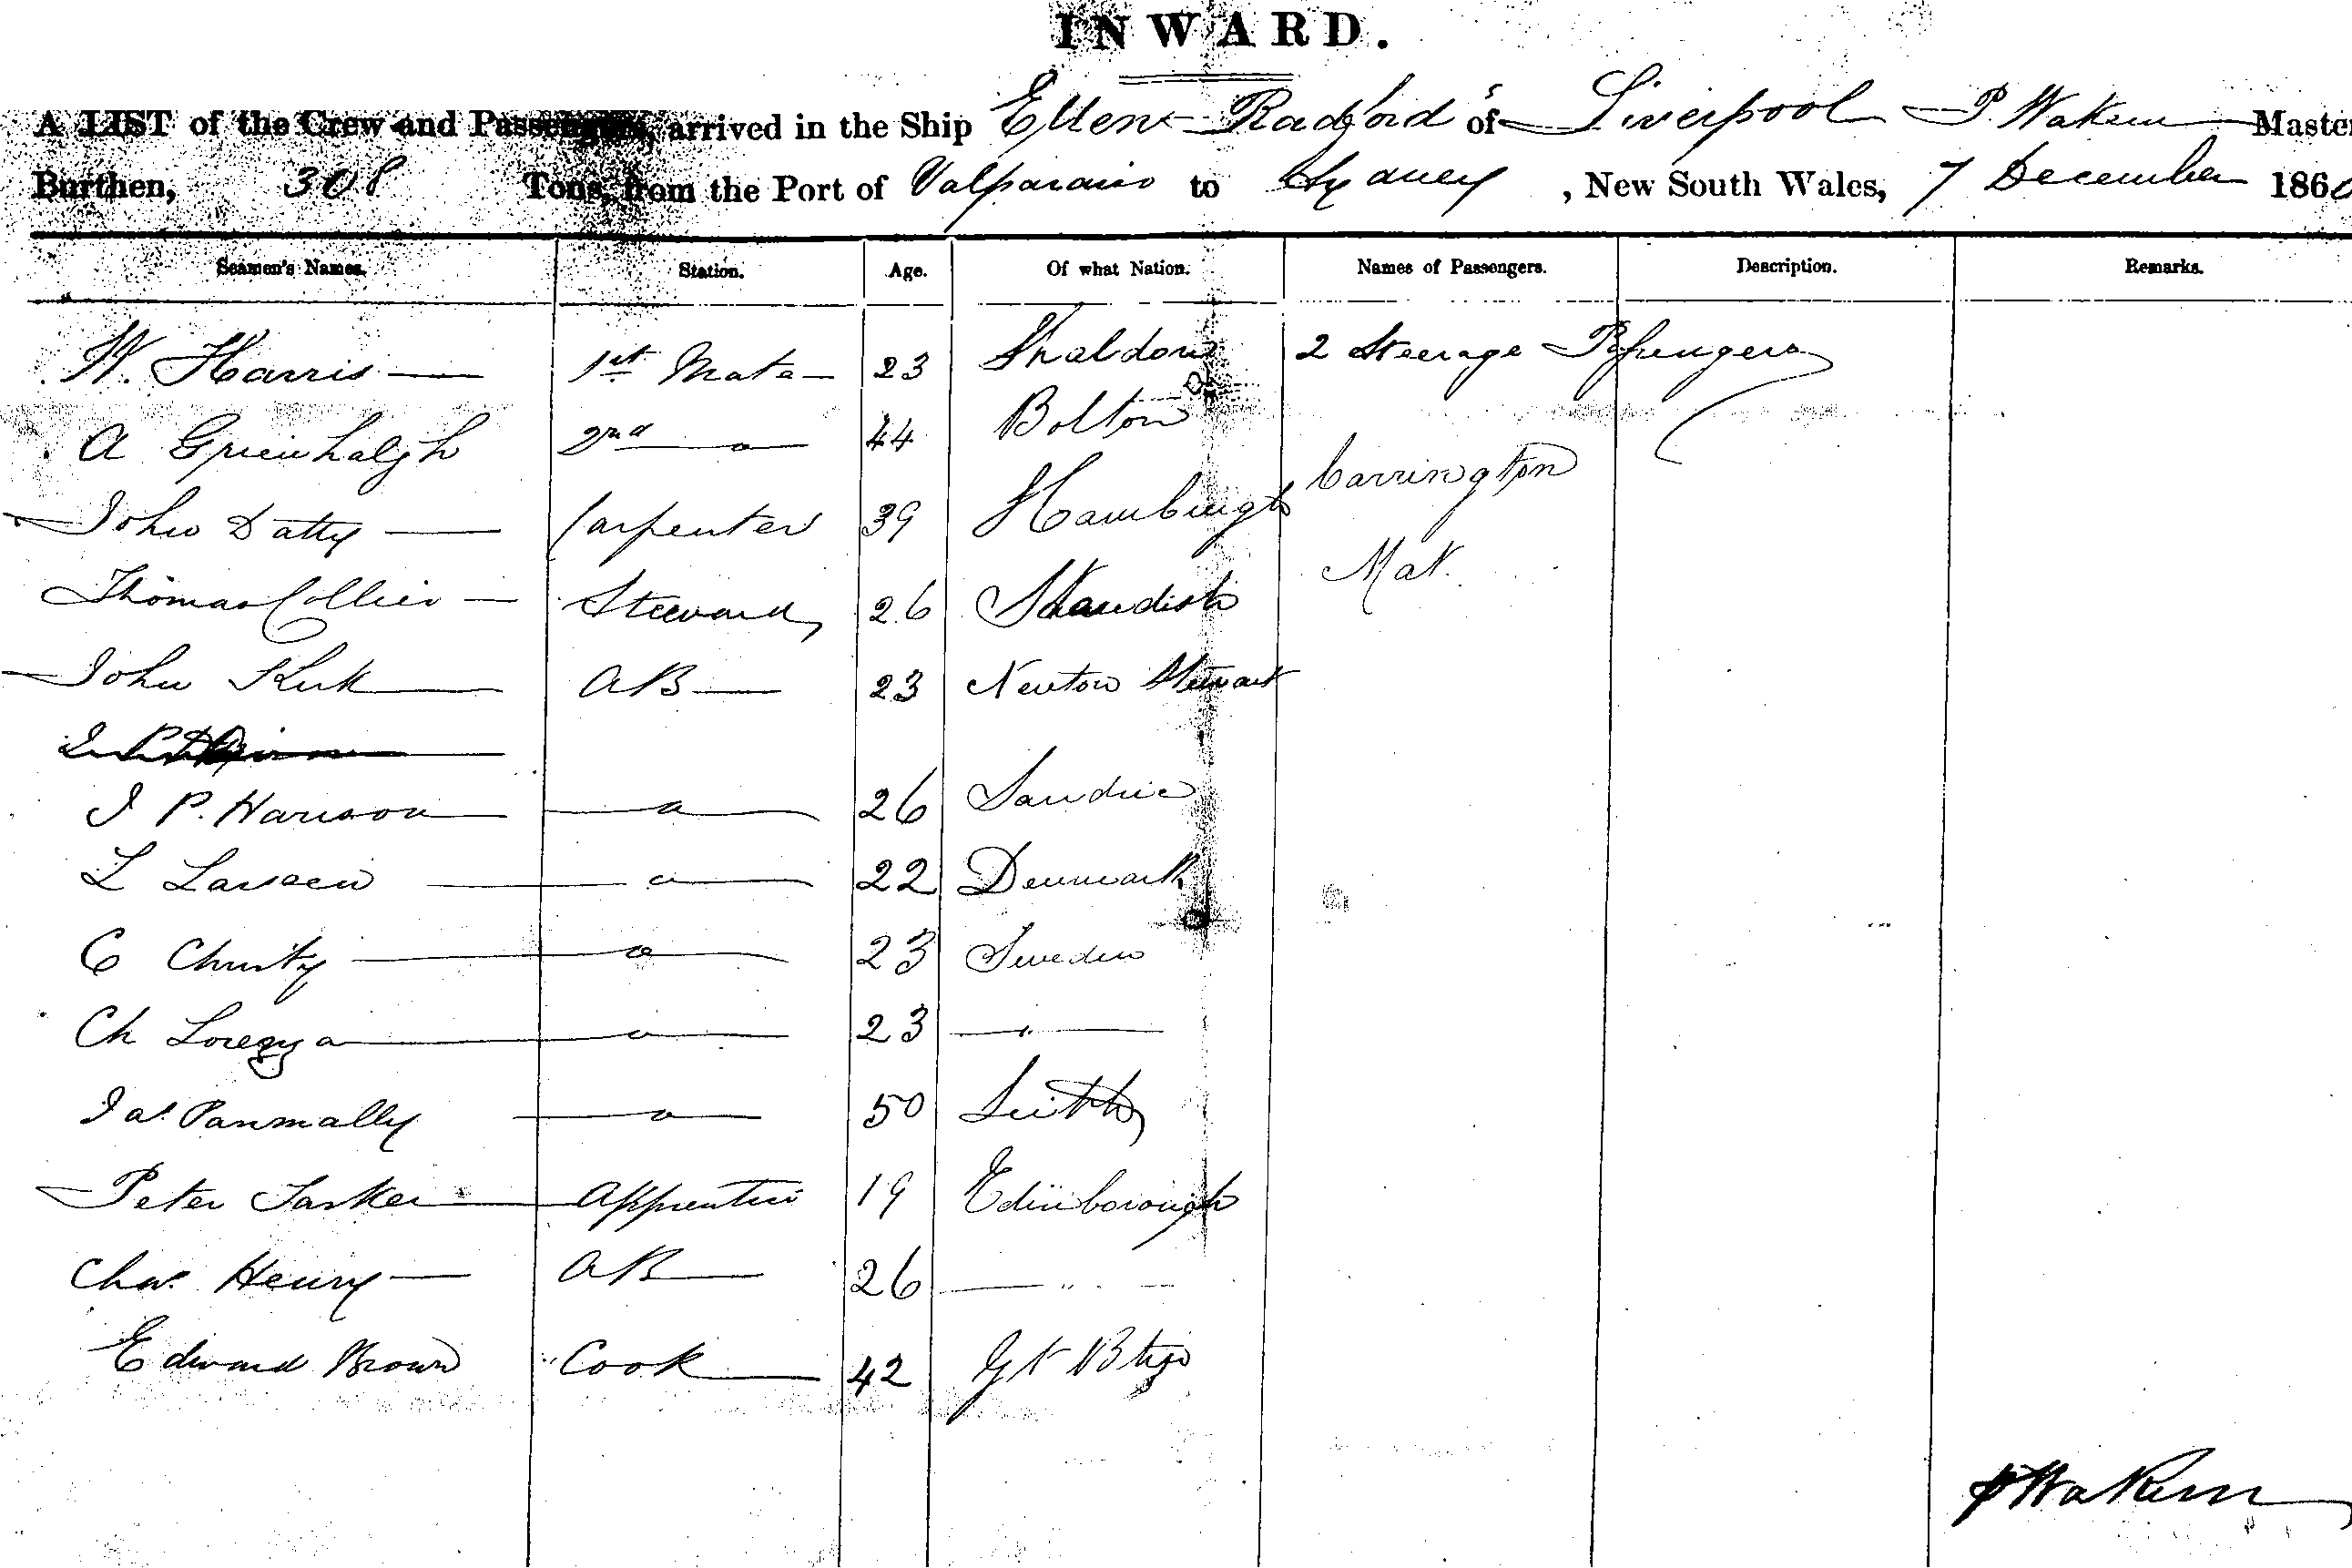 INWARD.
A LIST of the Crew and Passengers, arrived in the Ship Ellen Radford of Liverpool P. Wakem Master
Burthen, 308 Tons, from the Port of Valparaiso to Sydney, New South Wales, 7 December 186
Seamen's Names. Station. Age. Of what Nation. Names of Passengers. Description. Remarks.
W. Harris 1st Mate 23 Shaldon 2 Steerage Passengers
A Greenhalgh 2nd 44 Bolton
Carrington
John Datty Carpenter 39 Hamburgh
Mat.
Thomas Collier Steward 26 Standish
John Kirk AB 23 Newton Stewart
J P. Hanson 26
L Larsen 22 Denmark
C Christy 23 Sweden
Ch 23 "
Jas. Panmally 50 Leith
Peter Tasker Apprentice 19 Edinborough
Chas. Henry AB 26 "
Edward Brown Cook 42
P Wakem